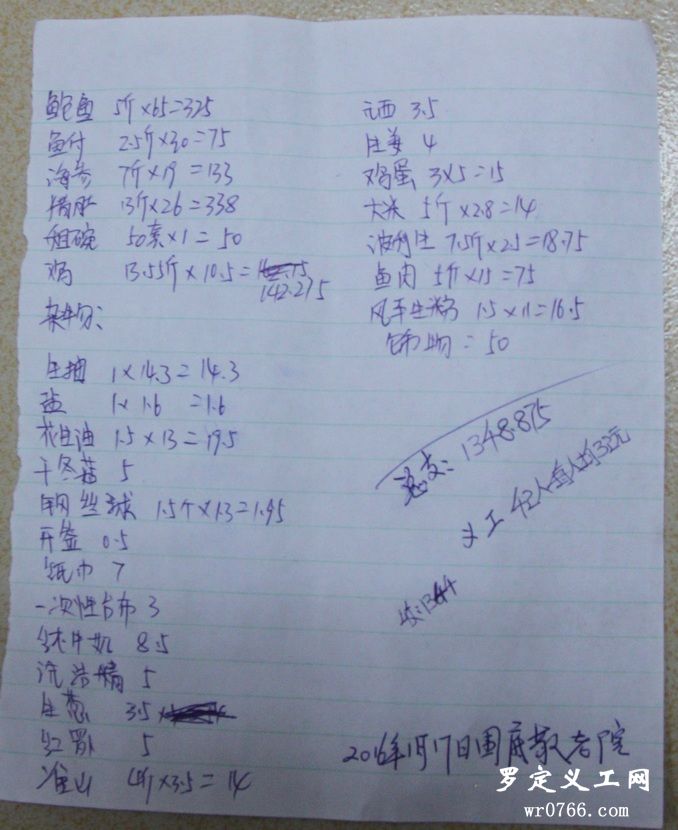 鲍鱼 5斤×65=325
鱼付 2.5斤×30=75
海参 7斤×19=133
13斤×26=338
粗碗 50套×1=50
鸡 13.55斤×10.5=
142.275
杂物:
生抽 1×14.3=14.3
盐 1×1.6 =1.6
花生油 1.5×13=19.5
干冬菇 5
钢丝球 1.5个×1.3=1.95
开盖 0.5
纸巾 7
一次性台布 3
纯牛奶 8.5
洗洁精 5
生葱 3.5
5
淮山 4斤×3.5=14
元西 3.5
生姜 4
鸡蛋 3×5=15
大米 5斤×2.8=14
7.5斤×2.5=18.75
鱼肉 5斤×15=75
1.5×11=16.5
饰物:=50
总支:1348.875
义工 42人每人均32元
收:1344
2016年1月17日围底敬老院
罗定义工网
wr0766.com